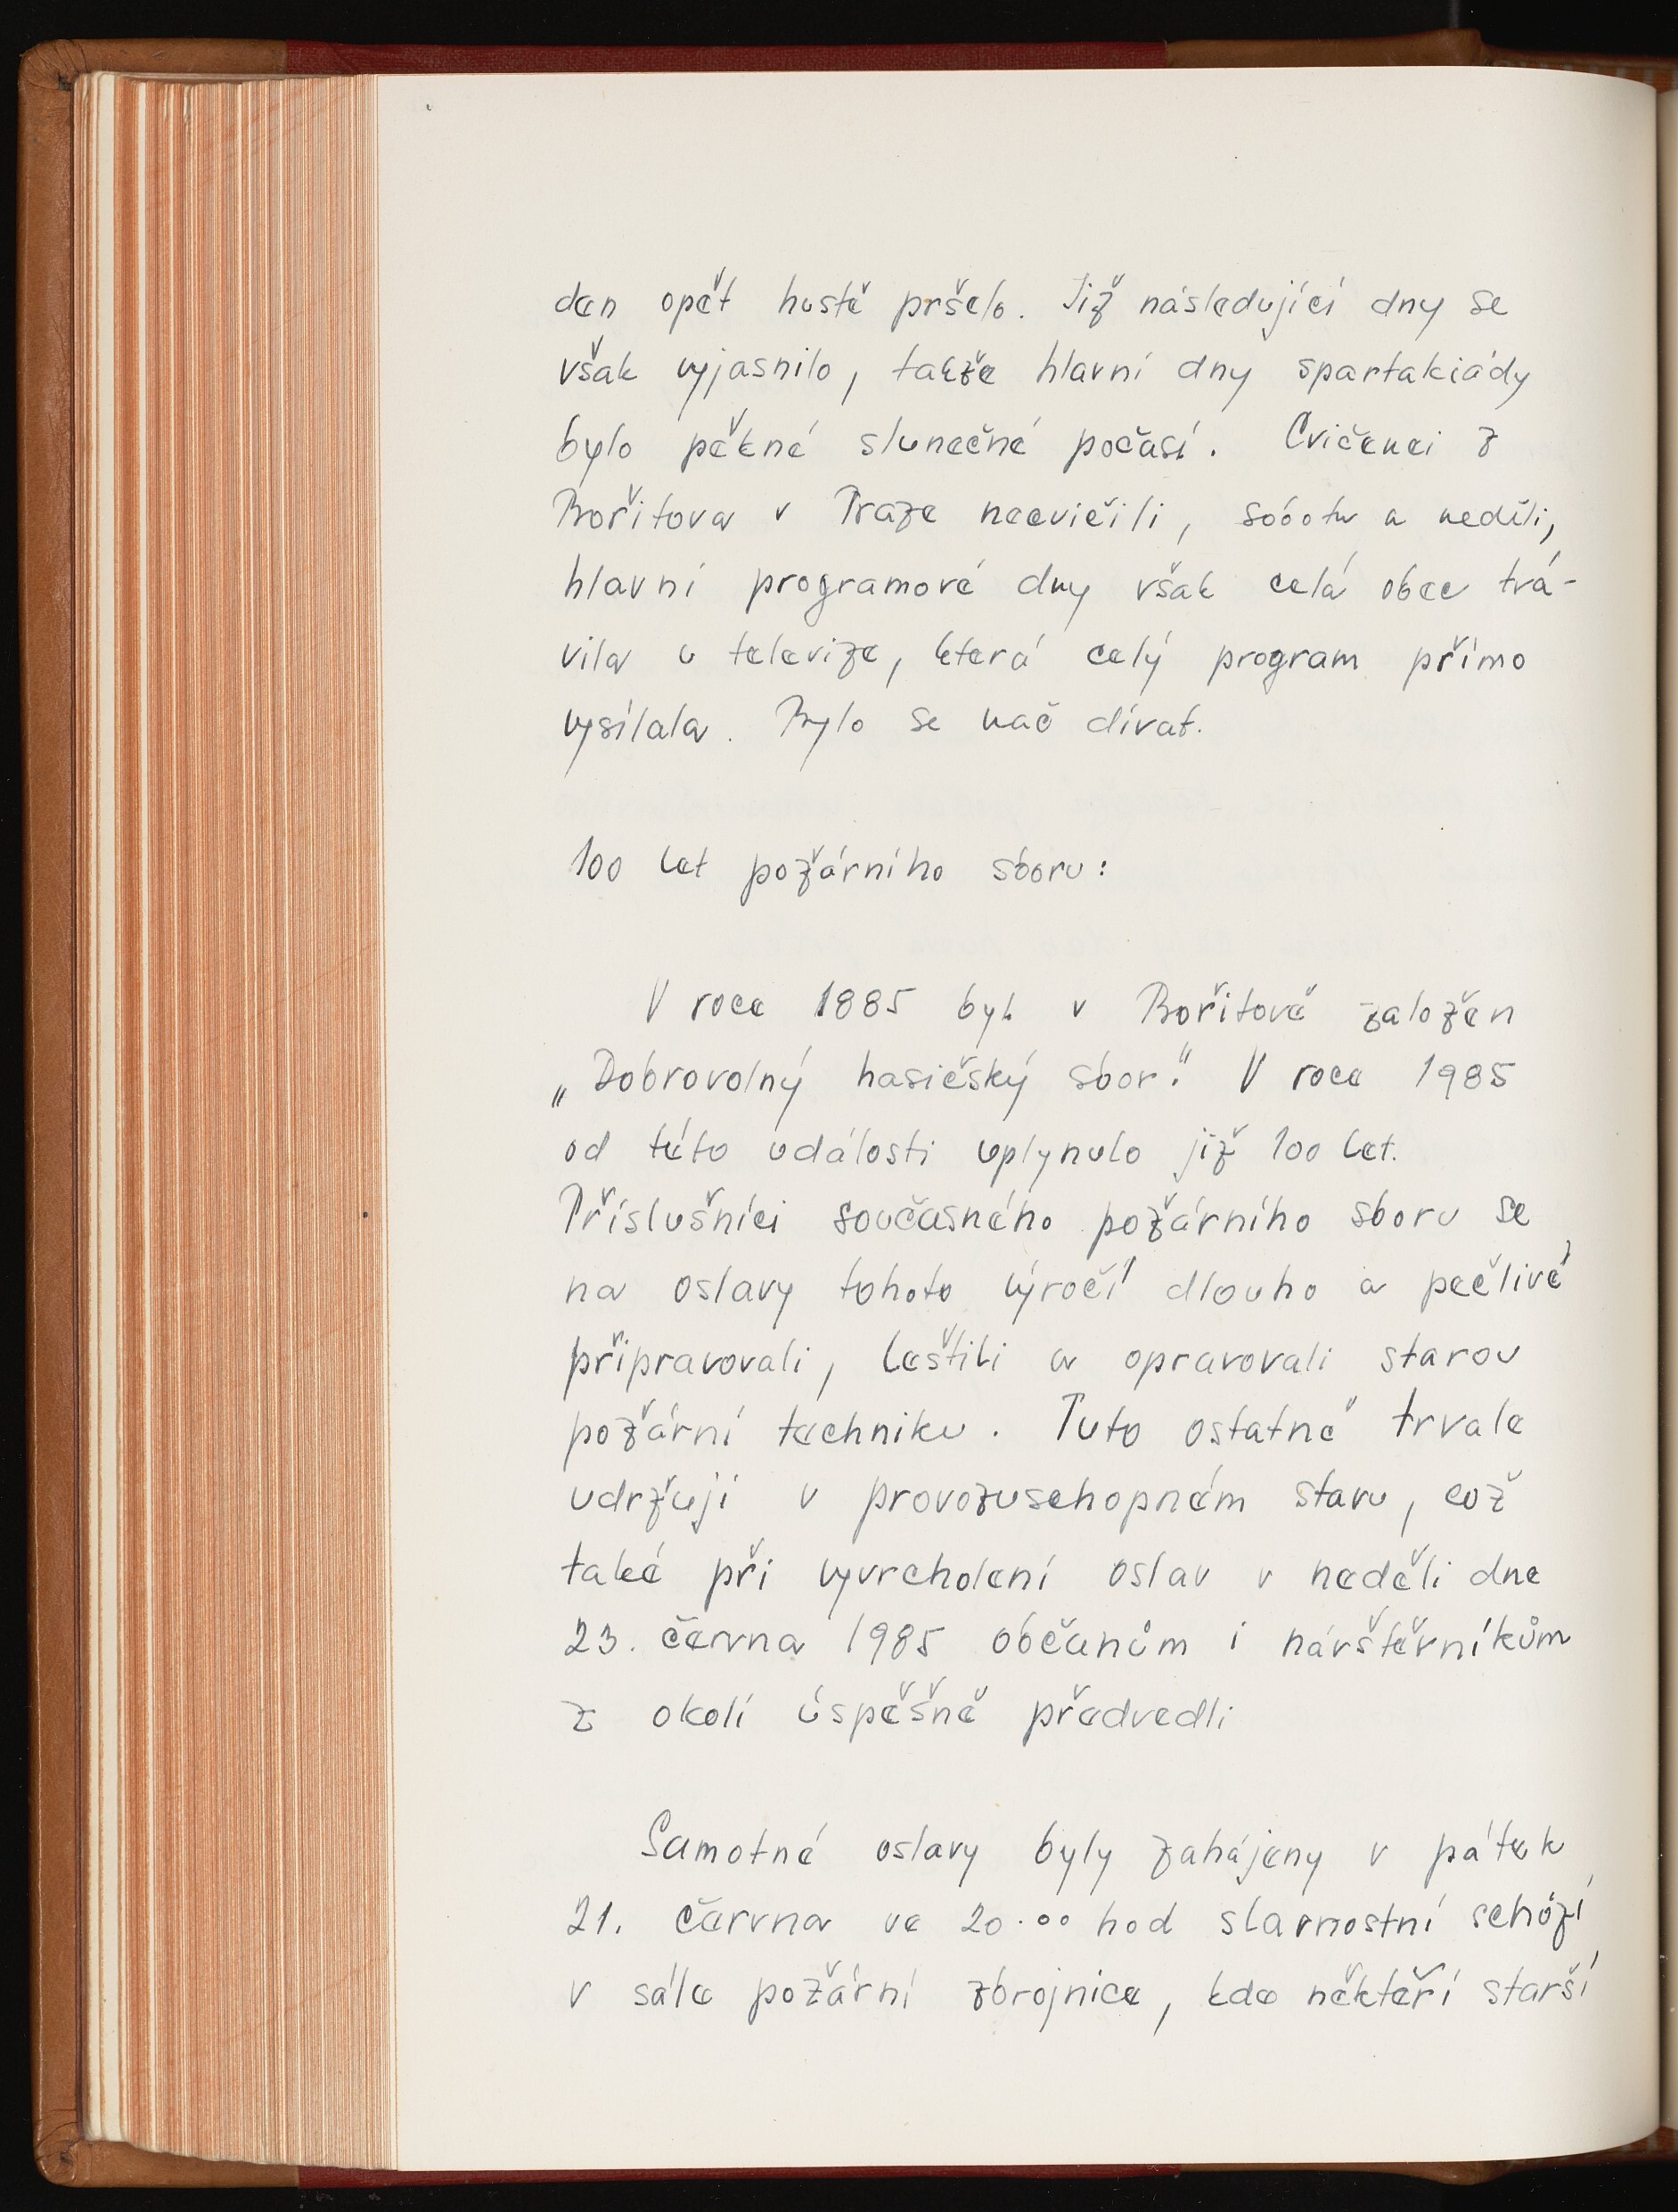 den opět hustě pršelo. Již následující dny se
však vyjasnilo, takže hlavní dny spartakiády
bylo pěkné slunečné počasí. Cvičenci z
Bořitova v Praze necvičili, sobotu a neděli,
hlavní programové dny však celá obec trá-
vila u televize, která celý program přímo
vysílala. Bylo se nač dívat.
100 let požárního sboru:
V roce 1885 byl v Bořitově založen
„Dobrovolný hasičský sbor." V roce 1985
od této události uplynulo již 100 let.
Příslušníci současného požárního sboru se
na oslavy tohoto výročí dlouho a pečlivě
připravovali, leštili a opravovali starou
požární techniku. Tuto ostatně trvale
udržují v provozuschopném stavu, což
také při vyvrcholení oslav v neděli dne
23. června 1985 občanům i návštěvníkům
z okolí úspěšně předvedli
Samotné oslavy byly zahájeny v pátek
21. června ve 20.00 hod slavnostní schůzí
v sále požární zbrojnice, kde někteří starší